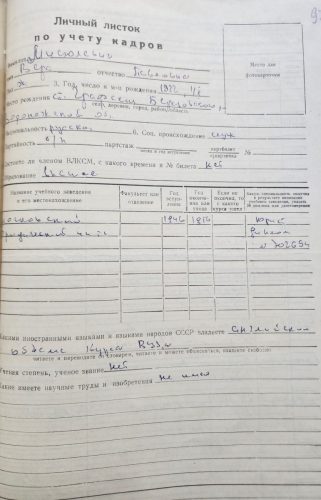 Личный листок
по учету кадров
Место для
фотокарточки
Вера отчество Павловна
ж 3. Год, число и м-ц рождения 1922
место рождения
село, деревня, город, район, область
Воронежской об.
русская 6. Соц. происхождение служ
партстаж партбилет
кандидатская карточка №
Состоите ли членом ВЛКСМ, с какого времени и № билета нет
Образование высшее
Название учебного заведения
и его местонахождение
Факультет или
отделение
Год
вступления
Год
окончания
или ухода
Если не
окончил, то
с какого
курса ушел
Какую специальность получил
в результате окончания
учебного заведения, указать
№ диплома или удостоверения
Московский 1946 1950 юрист
юридический диплом
Какими иностранными языками и языками народов СССР владеете английский
в объеме курса Вуза
читаете и переводите со словарем, читаете и можете объясняться, владеете свободно
Ученая степень, ученое звание нет
Какие имеете научные труды и изобретения не имею